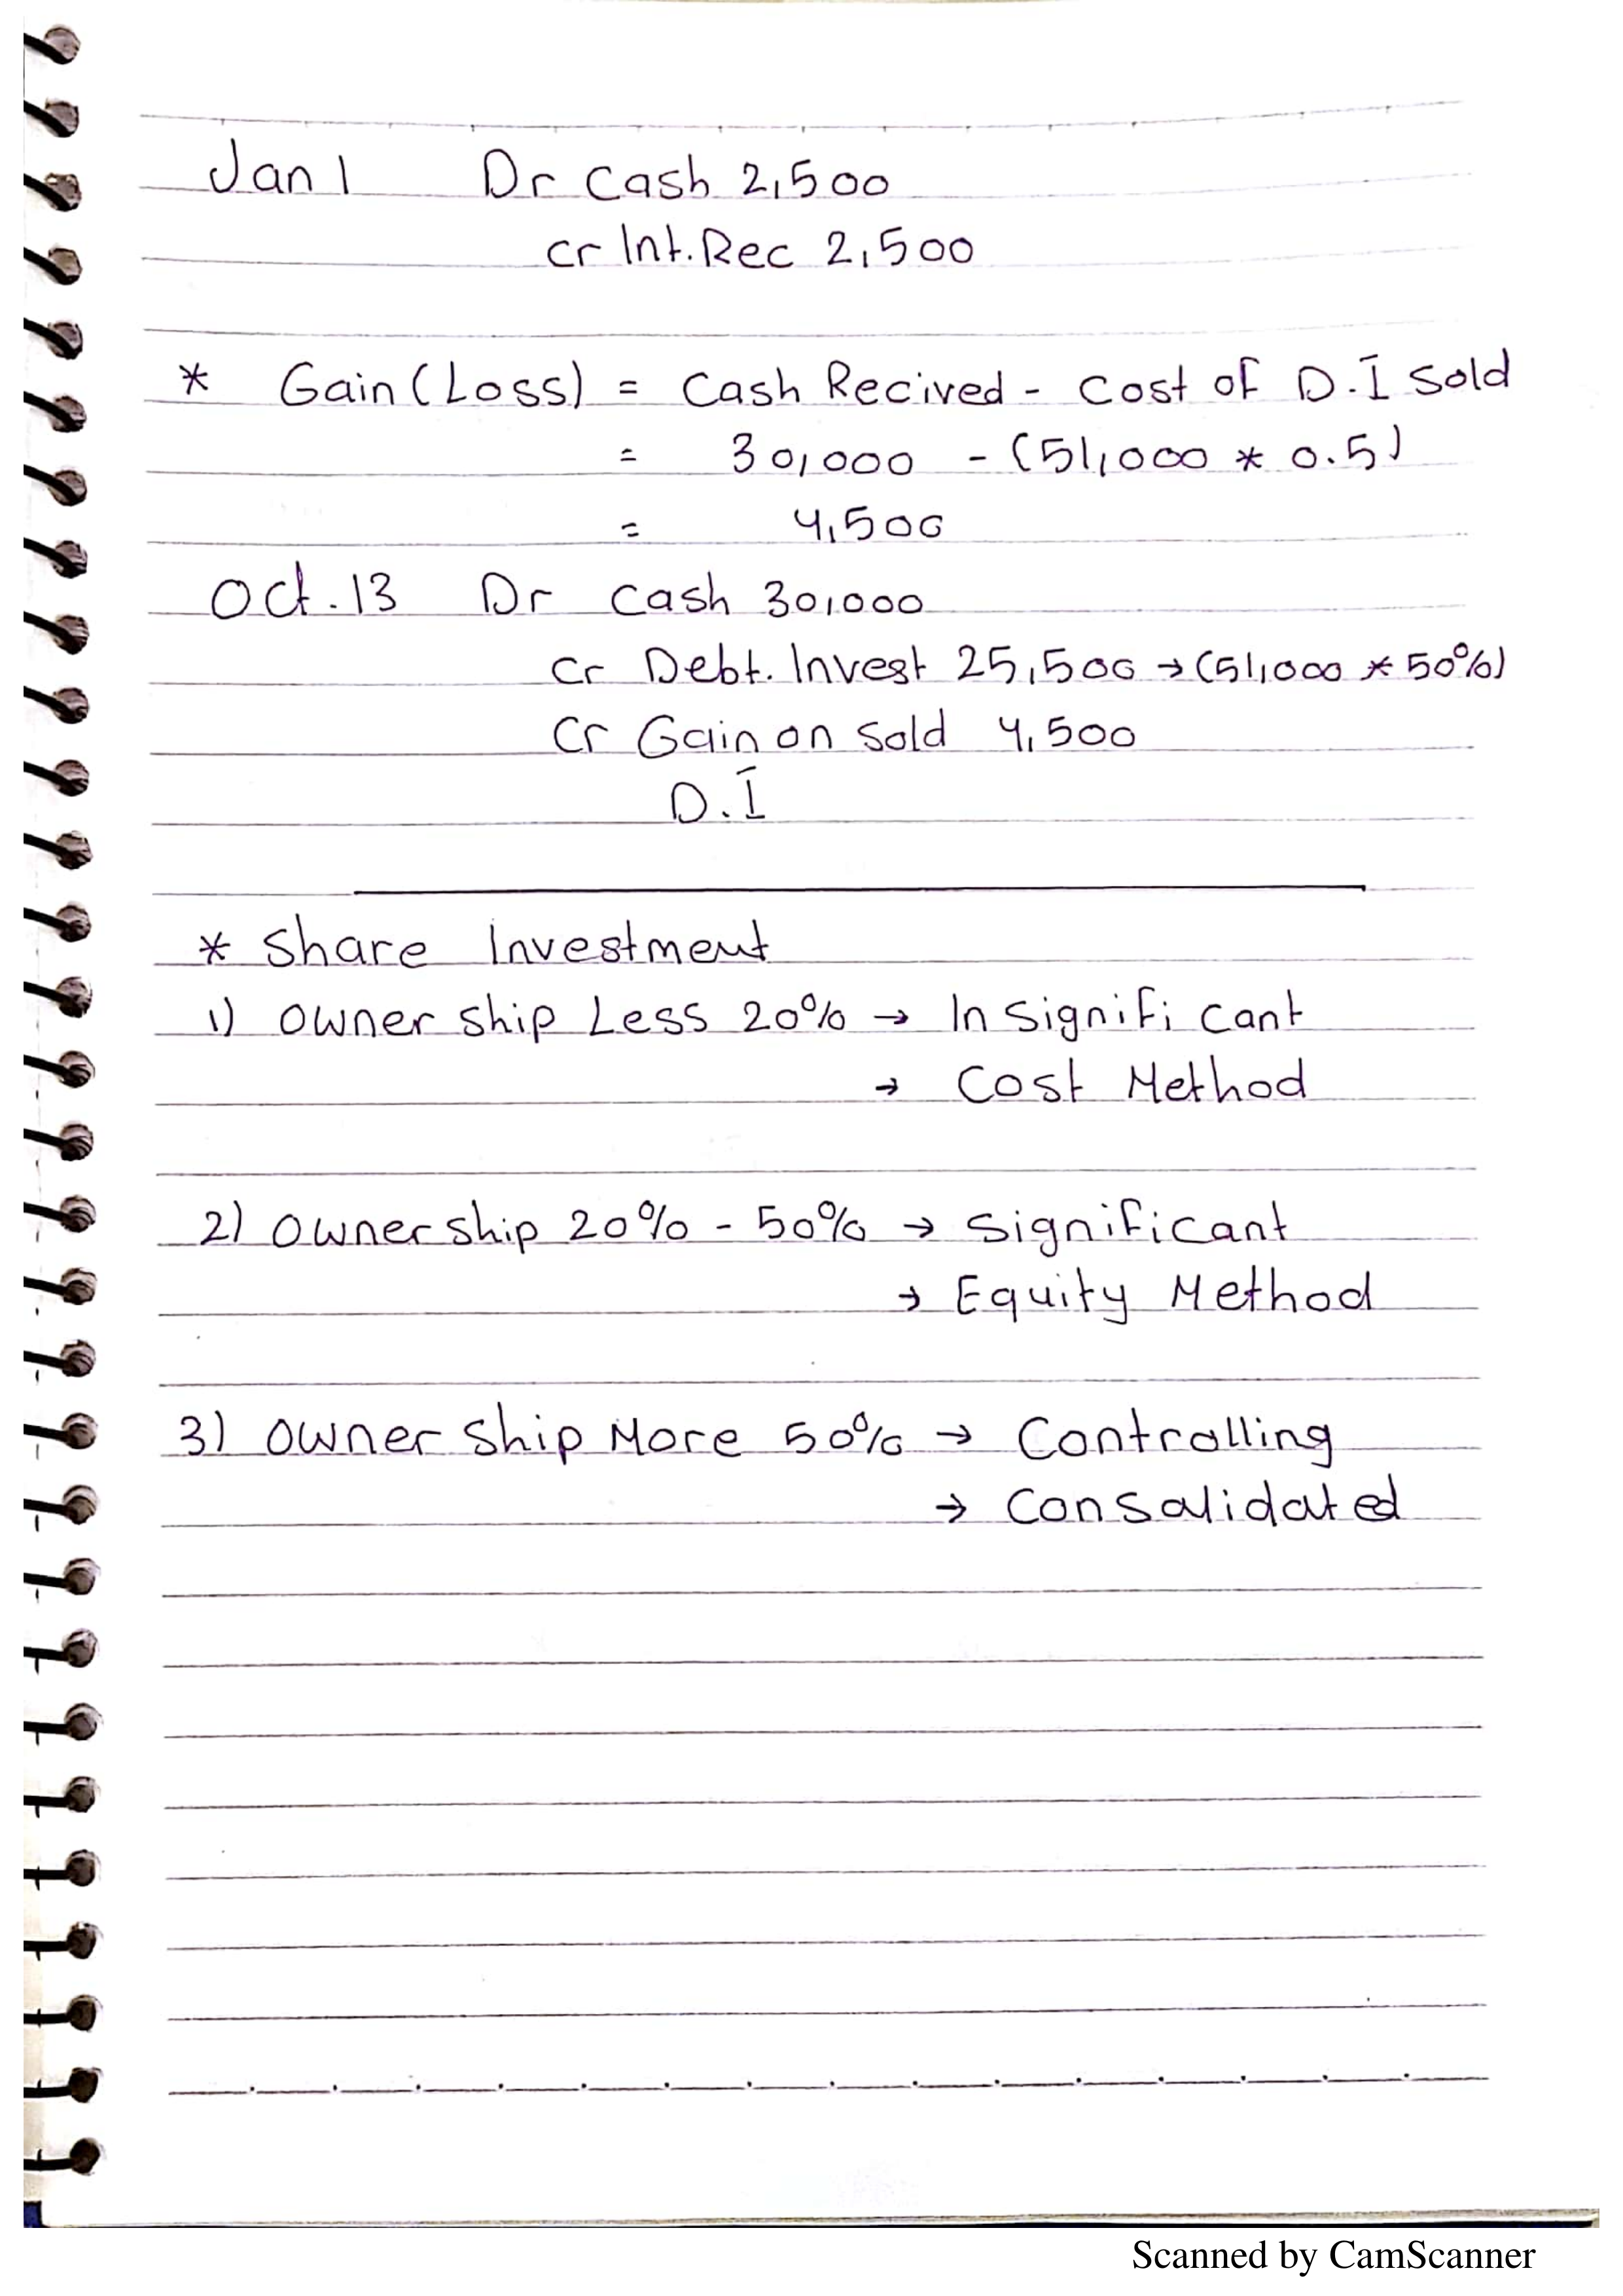 Jan 1 Dr Cash 2,500
cr Int. Rec 2,500
* Gain (Loss) = Cash Recived - Cost of D.I Sold
= 30,000 - (51,000 * 0.5)
= 4,500
Oct. 13 Dr Cash 30,000
Cr Debt. Invest 25,500 → (51,000 * 50%)
Cr Gain on Sold 4,500
D.I
* Share Investment
1) Owner ship Less 20% → In Significant
→ Cost Method
2) Owner ship 20% - 50% → Significant
→ Equity Method
3) Owner ship More 50% → Controlling
→ Consalidated
Scanned by CamScanner